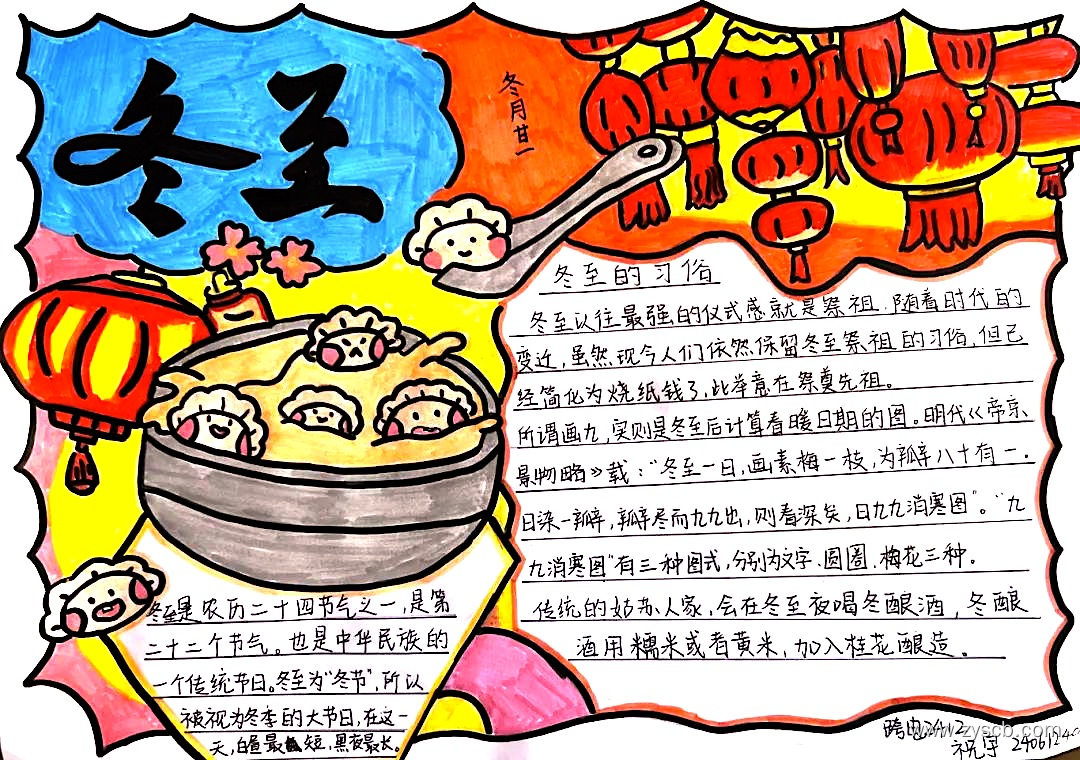 冬至
冬月廿一
冬至的习俗
冬至以往最强的仪式感就是祭祖.随着时代的
变迁,虽然现今人们依然保留冬至祭祖的习俗,但已
经简化为烧纸钱了,此举意在祭奠先祖。
所谓画九,实则是冬至后计算春暖日期的图。明代《帝京
景物略》载:“冬至一日,画素梅一枝,为瓣八十有一.
日染一瓣,瓣尽而九九出,则春深矣,日九九消寒图”。“九
九消寒图”有三种图式,分别为文字.圆圈.梅花三种。
传统的姑苏人家,会在冬至夜喝冬酿酒,冬酿
酒用糯米或者黄米,加入桂花酿造。
冬至是农历二十四节气之一,是第
二十二个节气。也是中华民族的
一个传统节日。冬至为“冬节”,所以
被视为冬季的大节日,在这一
天,白昼最短,黑夜最长。
www.zyscb.com